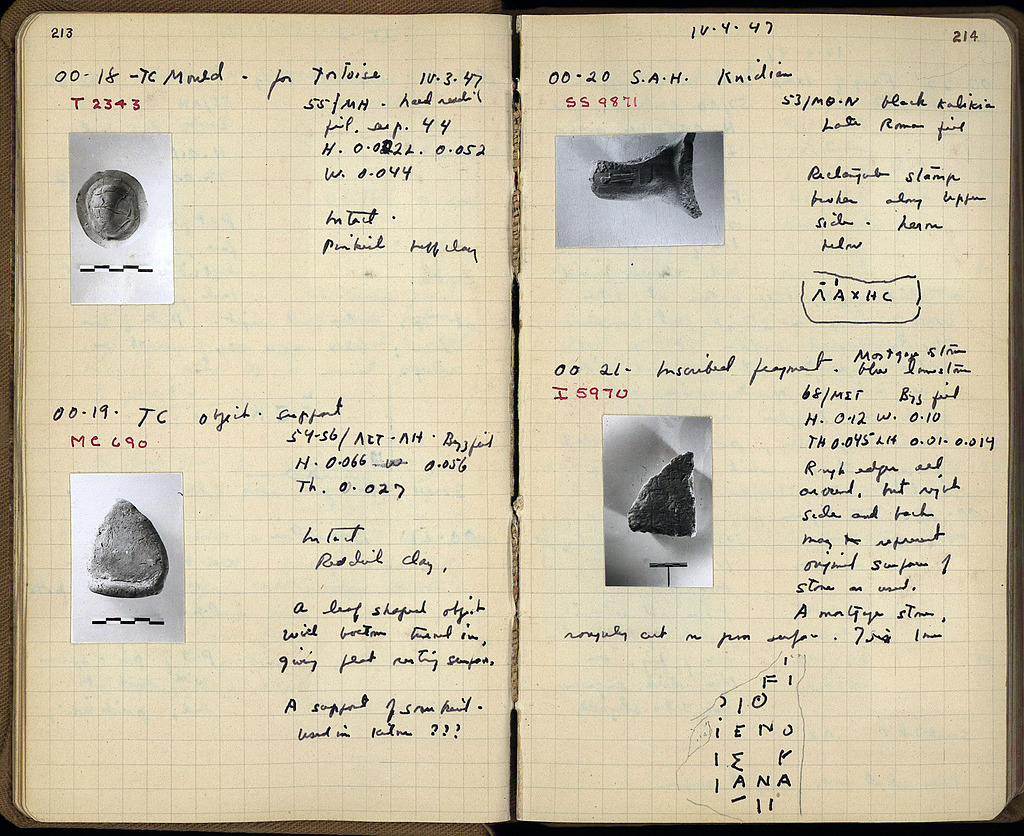 213
00-18 - TC Mould - for Tortoise IV.3.47
T 2343
55/MH -
fill. 44
H. 0.022 L. 0.052
W. 0.044
Intact.
Pinkish buff clay
00-19. TC object. support
MC 690
54-56/ΛΣΤ-ΛΗ. Byz fill
H. 0.066 W 0.056
Th. 0.027
Intact
Reddish clay.
A leaf shaped object
with bottom turned in,
giving flat resting surface.
A support of some kind.
used in kilns ???
IV.4.47
214
00-20 S.A.H. Knidian
SS 9871
53/ΜΘ-Ν black
Late Roman fill
Rectangular stamp
broken along upper
side. herm
below
ΛΑΧΗC
00 21- Inscribed fragment. Mortgage stone
blue limestone
I 5970
68/ΜΣΤ Byz fill
H. 0.12 W. 0.10
TH 0.045 LH 0.01-0.014
Rough edges all
around, but right
side and back
may represent
original surface of
stone as used.
A mortgage stone,
roughly cut on poor surface.
Ι
F Ι
Ο Ι Ο
Ι Ε Ν Ο
Ι Σ Κ
Ι Α Ν Α